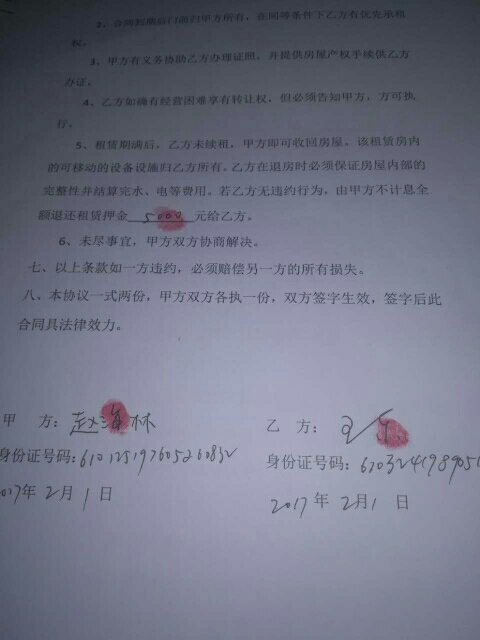 2、合同到期前门面归甲方所有，在同等条件下乙方有优先承租
权。
3、甲方有义务协助乙方办理证照，并提供房屋产权手续供乙方
办证。
4、乙方如确有经营困难享有转让权，但必须告知甲方，方可执
行。
5、租赁期满后，乙方未续租，甲方即可收回房屋。该租赁房内
的可移动的设备设施归乙方所有。乙方在退房时必须保证房屋内部的
完整性并结算完水、电等费用。若乙方无违约行为，由甲方不计息全
额退还租赁押金5000元给乙方。
6、未尽事宜，甲方双方协商解决。
七、以上条款如一方违约，必须赔偿另一方的所有损失。
八、本协议一式两份，甲方双方各执一份，双方签字生效，签字后此
合同具法律效力。
甲 方：赵海林
乙 方：
身份证号码：610125197605260832
身份证号码：
2017年 2月 1 日
2017 年 2月1 日